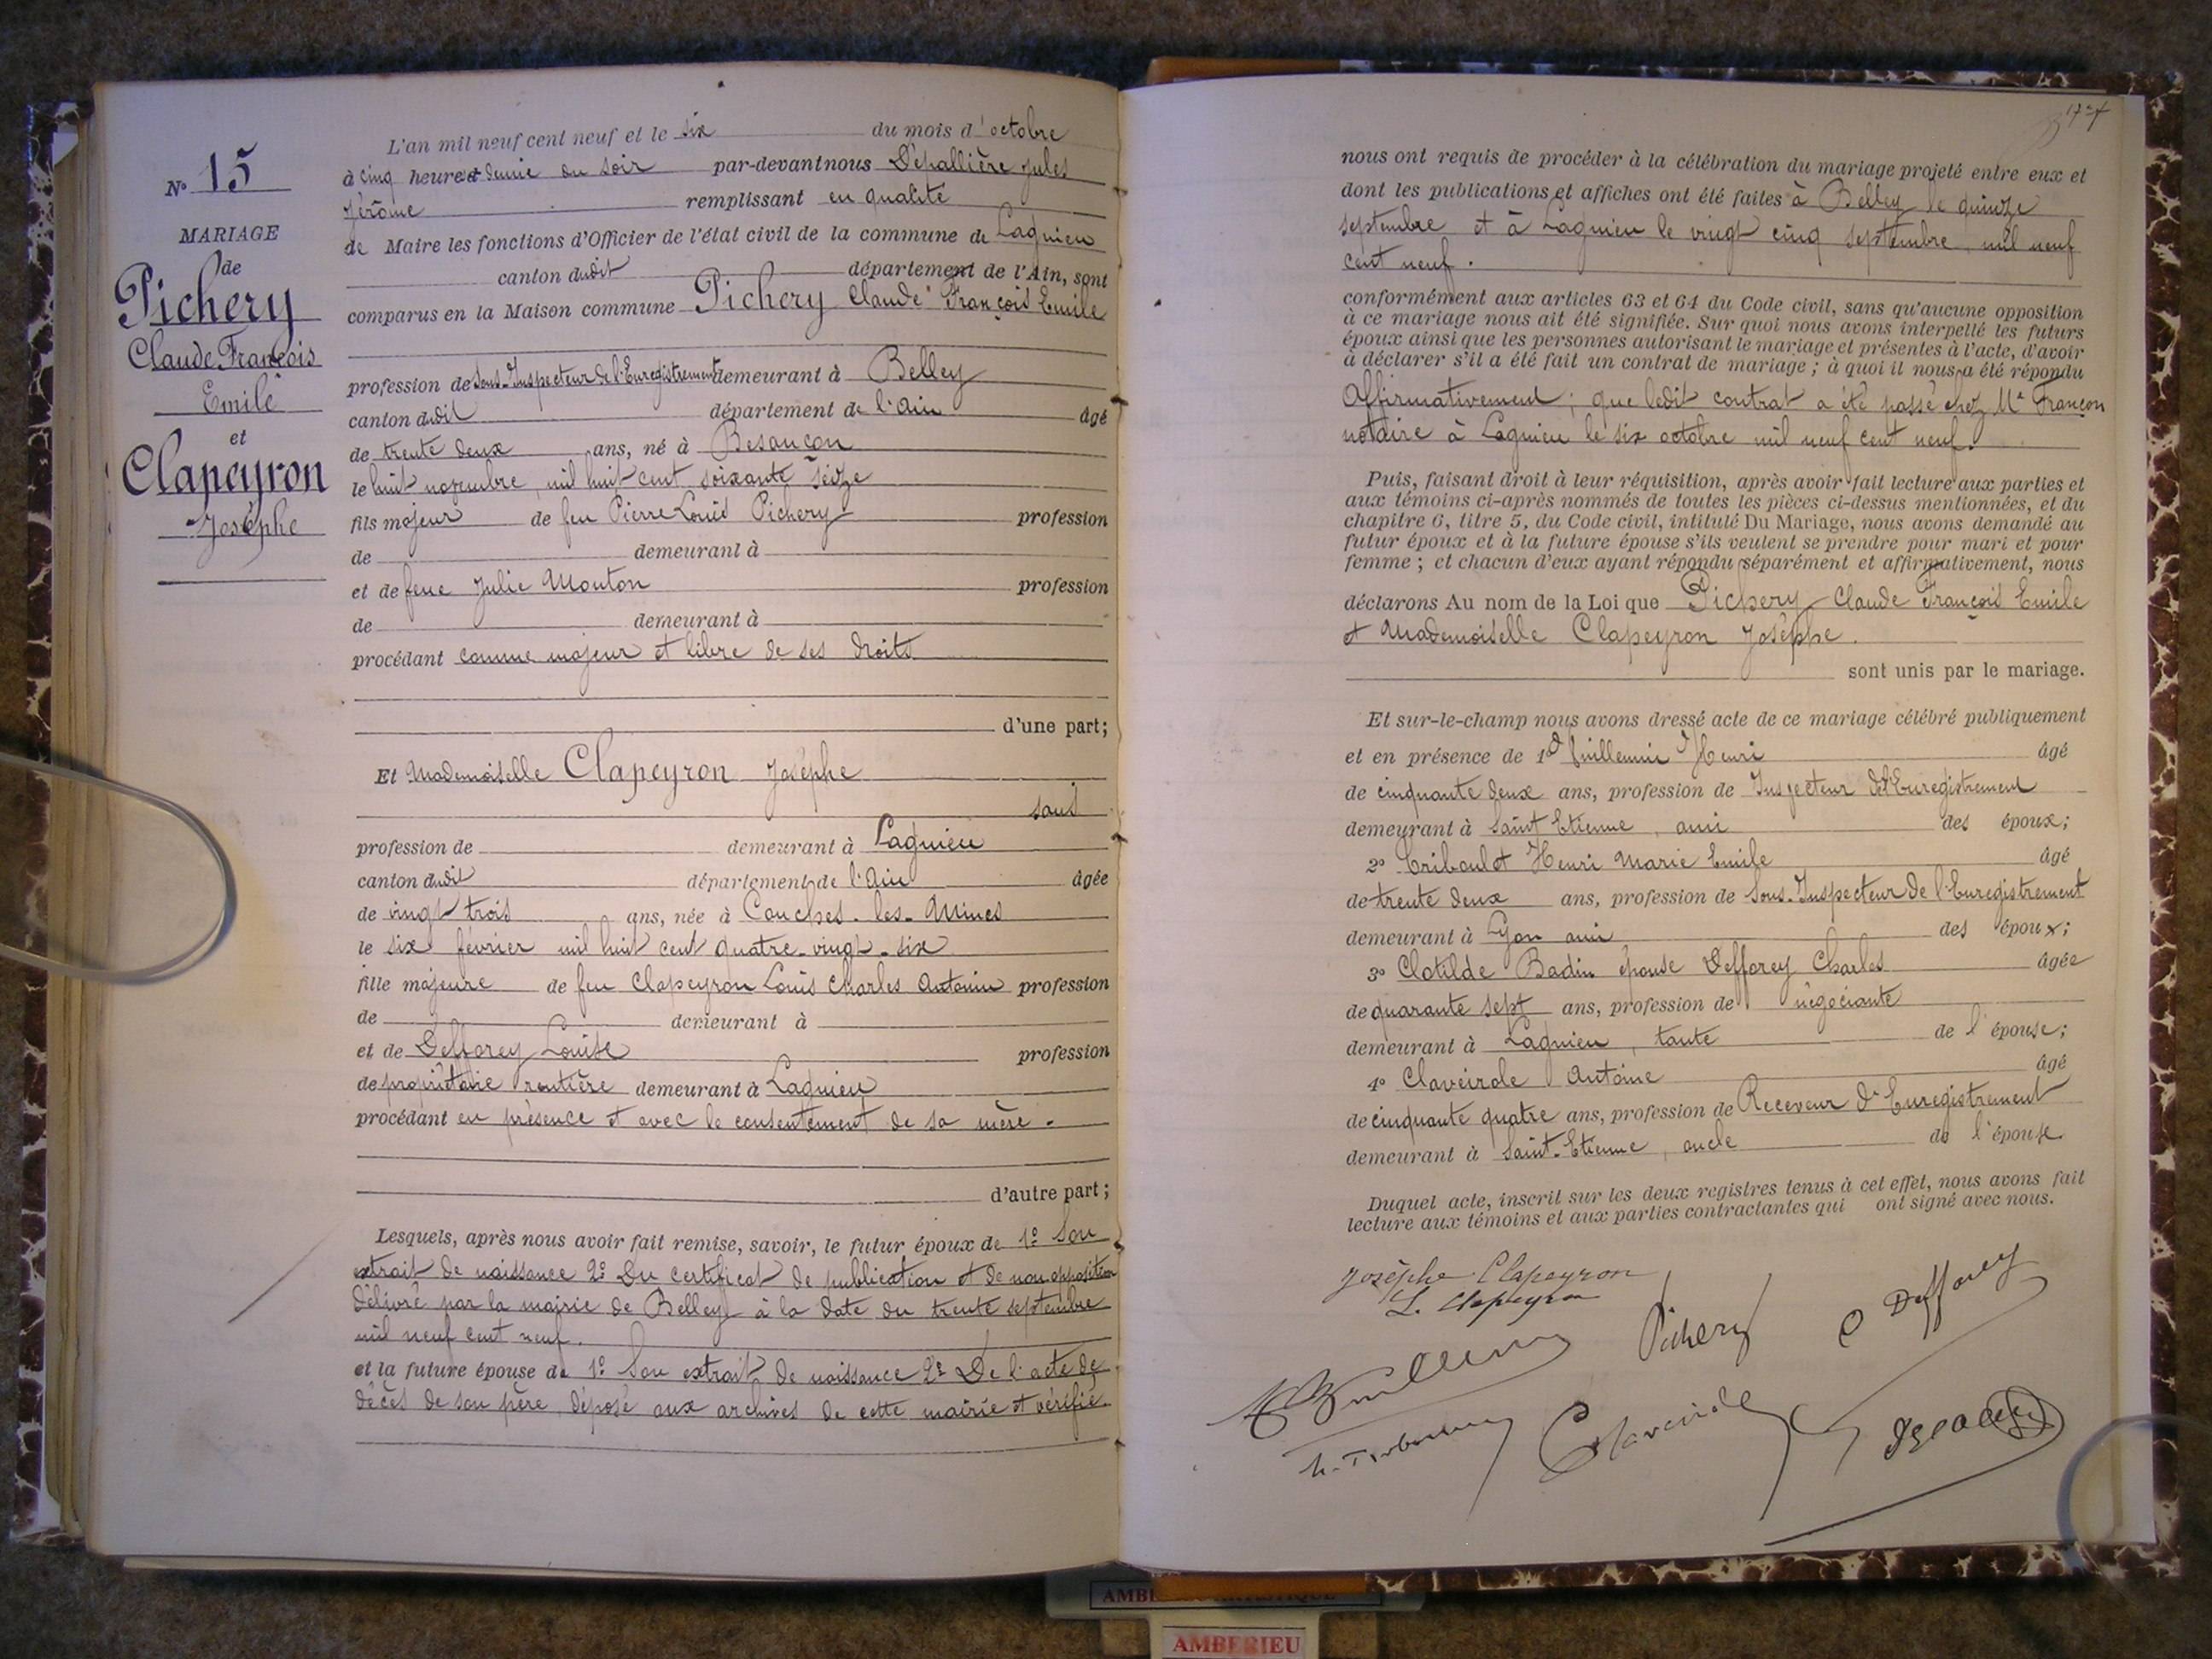 N° 15
MARIAGE
de
Pichery
Claude François
Emile
et
Clapeyron
Josèphe
L'an mil neuf cent neuf et le six du mois d'octobre
à cinq heures et demie du soir par-devant nous Dépallière Jules
Jérôme remplissant en qualité
de Maire les fonctions d'Officier de l'état civil de la commune de Lagnieu
canton dudit département de l'Ain, sont
comparus en la Maison commune Pichery Claude François Emile
profession de Sous-Inspecteur de l'Enregistrement demeurant à Belley
canton dudit département de l'Ain âgé
de trente deux ans, né à Besançon
le huit novembre, mil huit cent soixante seize
fils majeur de feu Pierre Louis Pichery profession
de demeurant à
et de feue Julie Mouton profession
de demeurant à
procédant comme majeur et libre de ses droits
d'une part;
Et Mademoiselle Clapeyron Josèphe
sans
profession de demeurant à Lagnieu
canton dudit département de l'Ain âgée
de vingt trois ans, née à Couches-les-Mines
le six février mil huit cent quatre-vingt-six
fille majeure de feu Clapeyron Louis Charles Antonin profession
de demeurant à
et de Defforey Louise profession
de propriétaire rentière demeurant à Lagnieu
procédant en présence et avec le consentement de sa mère.
d'autre part;
Lesquels, après nous avoir fait remise, savoir, le futur époux de 1° Son
extrait de naissance 2° Du certificat de publication et de non opposition
délivré par la mairie de Belley à la date du trente septembre
mil neuf cent neuf.
et la future épouse de 1° Son extrait de naissance 2° De l'acte de
décès de son père, déposé aux archives de cette mairie et vérifié.
nous ont requis de procéder à la célébration du mariage projeté entre eux et
dont les publications et affiches ont été faites à Belley le quinze
septembre et à Lagnieu le vingt cinq septembre mil neuf
cent neuf.
conformément aux articles 63 et 64 du Code civil, sans qu'aucune opposition
à ce mariage nous ait été signifiée. Sur quoi nous avons interpellé les futurs
époux ainsi que les personnes autorisant le mariage et présentes à l'acte, d'avoir
à déclarer s'il a été fait un contrat de mariage; à quoi il nous a été répondu
Affirmativement; que ledit contrat a été passé chez Me Françon
notaire à Lagnieu le six octobre mil neuf cent neuf.
Puis, faisant droit à leur réquisition, après avoir fait lecture aux parties et
aux témoins ci-après nommés de toutes les pièces ci-dessus mentionnées, et du
chapitre 6, titre 5, du Code civil, intitulé Du Mariage, nous avons demandé au
futur époux et à la future épouse s'ils veulent se prendre pour mari et pour
femme; et chacun d'eux ayant répondu séparément et affirmativement, nous
déclarons Au nom de la Loi que Pichery Claude François Emile
et Mademoiselle Clapeyron Josèphe.
sont unis par le mariage.
Et sur-le-champ nous avons dressé acte de ce mariage célébré publiquement
et en présence de 1° Vuillemin Henri âgé
de cinquante deux ans, profession de Inspecteur de l'Enregistrement
demeurant à Saint Etienne, ami des époux;
2° Triboulet Henri Marie Emile âgé
de trente deux ans, profession de Sous-Inspecteur de l'Enregistrement
demeurant à Lyon ami des époux;
3° Clotilde Badin épouse Defforey Charles âgée
de quarante sept ans, profession de négociante
demeurant à Lagnieu, tante de l'épouse;
4° Claveirole Antoine âgé
de cinquante quatre ans, profession de Receveur d'Enregistrement
demeurant à Saint-Etienne, oncle de l'épouse.
Duquel acte, inscrit sur les deux registres tenus à cet effet, nous avons fait
lecture aux témoins et aux parties contractantes qui ont signé avec nous.
Josèphe Clapeyron
L. Clapeyron
Pichery
C Defforey
Claveirole
AMBERIEU